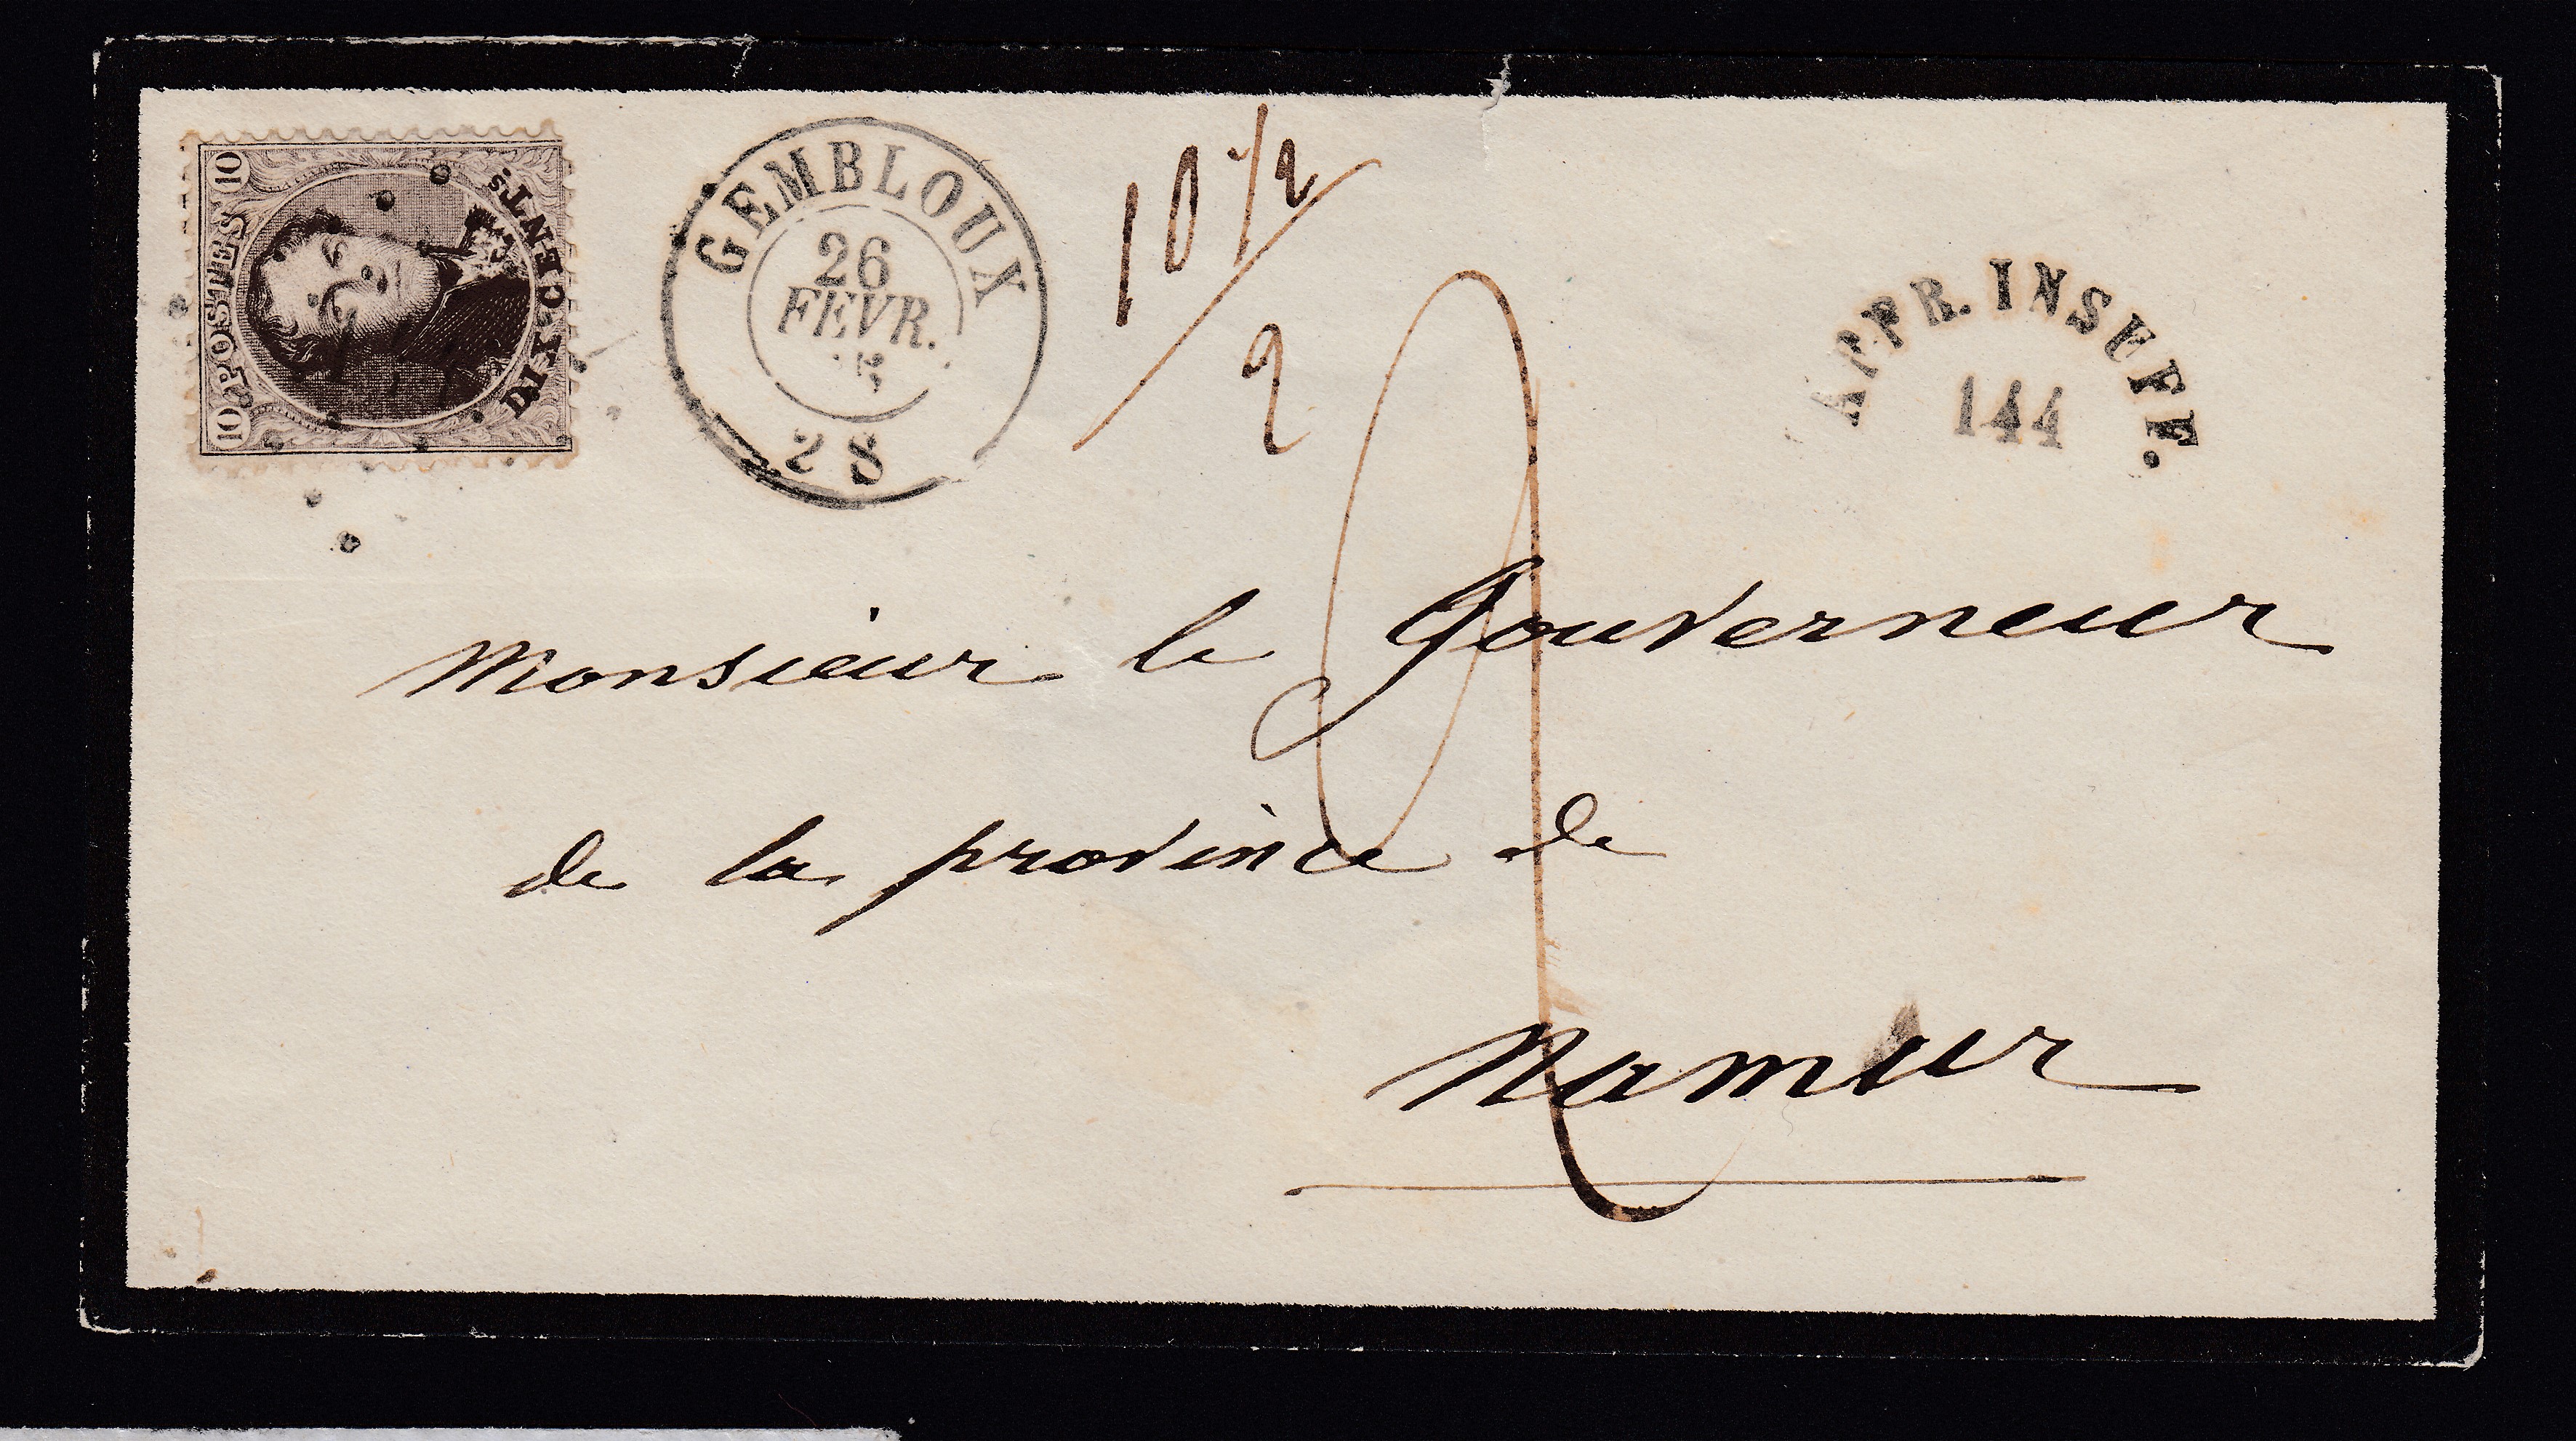 10 POSTES 10
DIX CENTs.
GEMBLOUX
26
FEVR.
28
10 1/2
2
APFR. INSUFF.
144
2
Monsieur le Gouverneur
de la province de
Namur